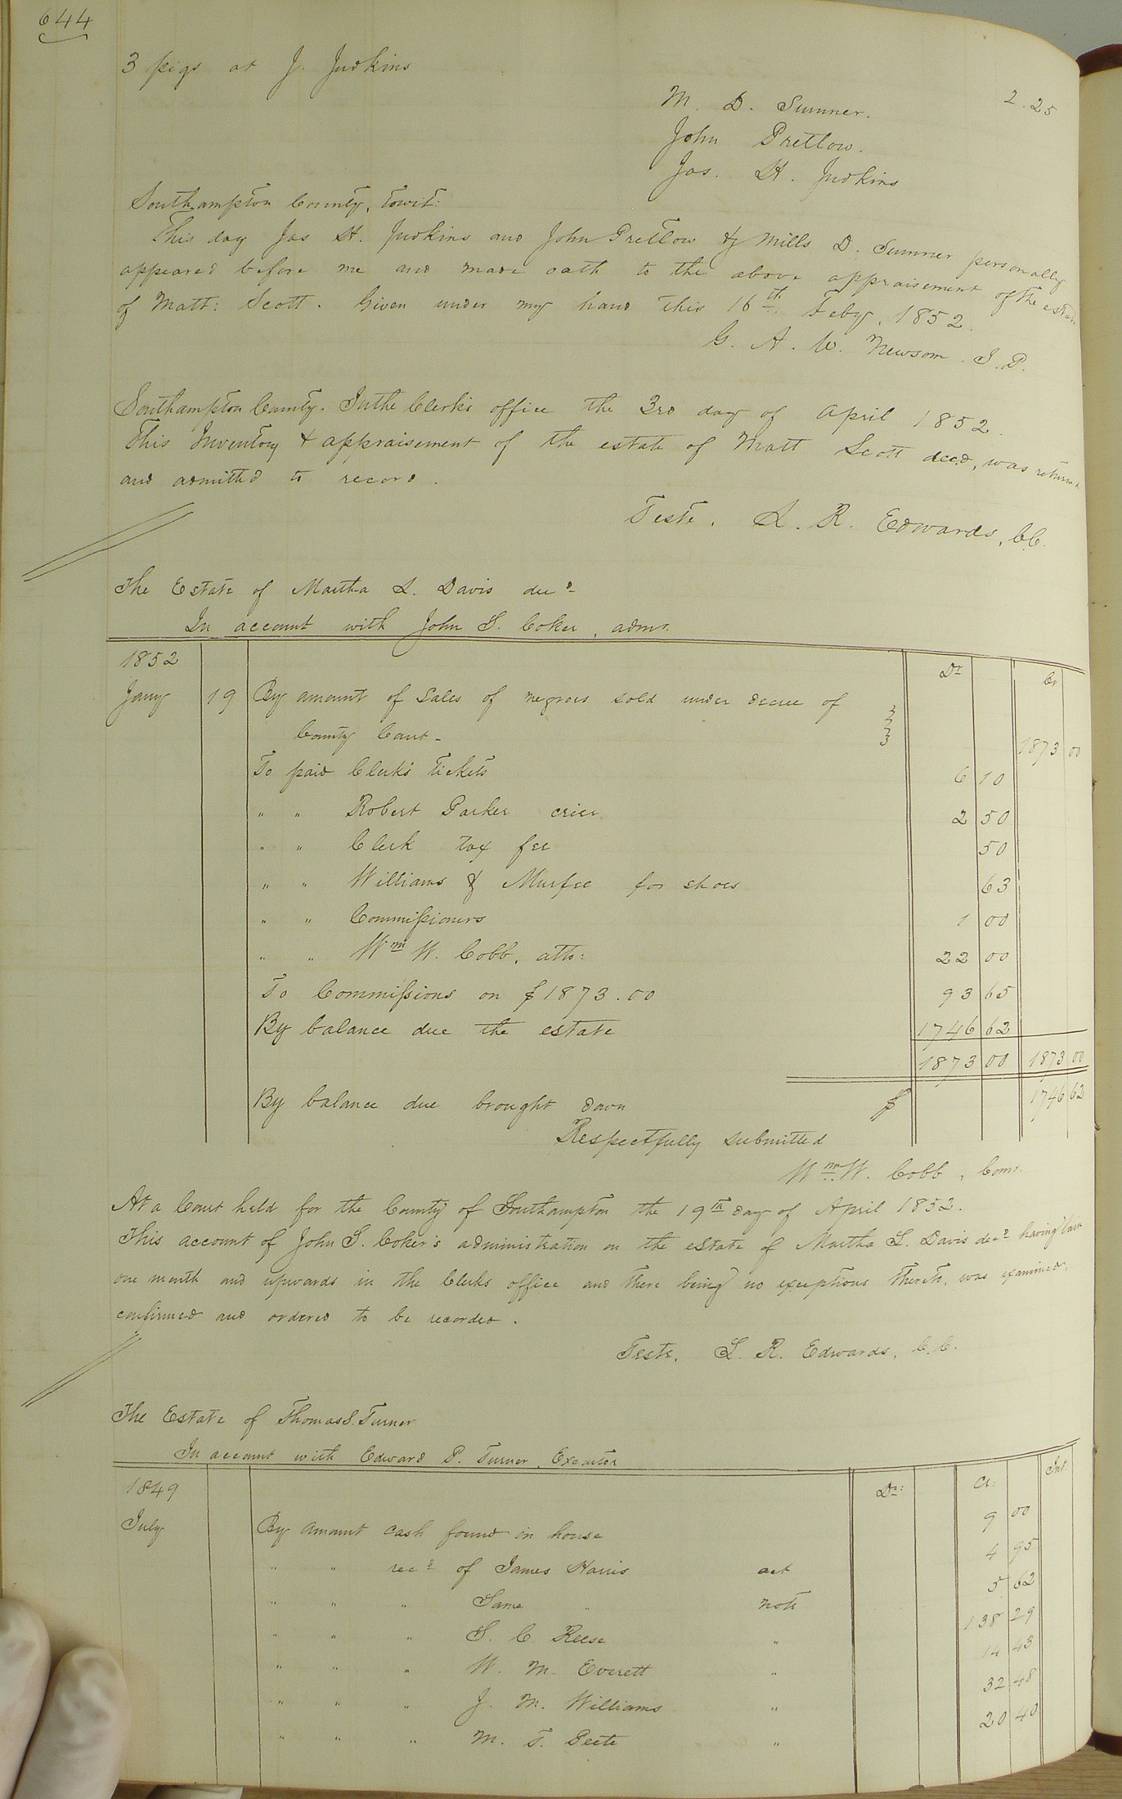 644
3 pigs at J. Judkins 2.25
M. D. Sumner.
John Pretlow.
Jas. H. Judkins
Southampton County, towit:
This day Jas H. Judkins and John Pretlow & Mills D. Sumner personally
appeared before me and made oath to the above appraisement of the estate
of Matt: Scott. Given under my hand this 16th Feby, 1852.
G. A. W. Newsom J.P.
Southampton County. In the Clerk's office the 3rd day of April 1852.
This Inventory & appraisement of the estate of Matt Scott decd, was returned
and admitted to record.
Teste. L. R. Edwards, C.C.
The Estate of Martha L. Davis decd
In account with John S. Coker, admr.
1852 Dr Cr
Jany 19 By amount of sales of negroes sold under decree of
County Court - 1873 00
To paid Clerk's tickets 6 10
" " Robert Parker crier 2 50
" " Clerk tax fee 50
" " Williams & Murfee for shoes 63
" " Commissioners 1 00
" " Wm W. Cobb, atto: 22 00
To Commissions on $1873.00 93 65
By balance due the estate 1746 62
1873 00 1873 00
By balance due brought down $ 1746 62
Respectfully submitted
Wm W. Cobb, Comr.
At a Court held for the County of Southampton the 19th day of April 1852.
This account of John S. Coker's administration on the estate of Martha L. Davis decd having lain
one month and upwards in the Clerks office and there being no exceptions thereto, was examined,
confirmed and ordered to be recorded.
Teste, L. R. Edwards, C.C.
The Estate of Thomas S. Turner
In account with Edward P. Turner, Executor
1849 Dr: Cr: Int.
July By amount cash found in house 9 00
" " recd of James Harris act 4 95
" " " Same " note 5 62
" " " S. C. Reese " 138 29
" " " W. M. Everett " 14 43
" " " J. M. Williams " 32 48
" " " M. T. Peete " 20 40